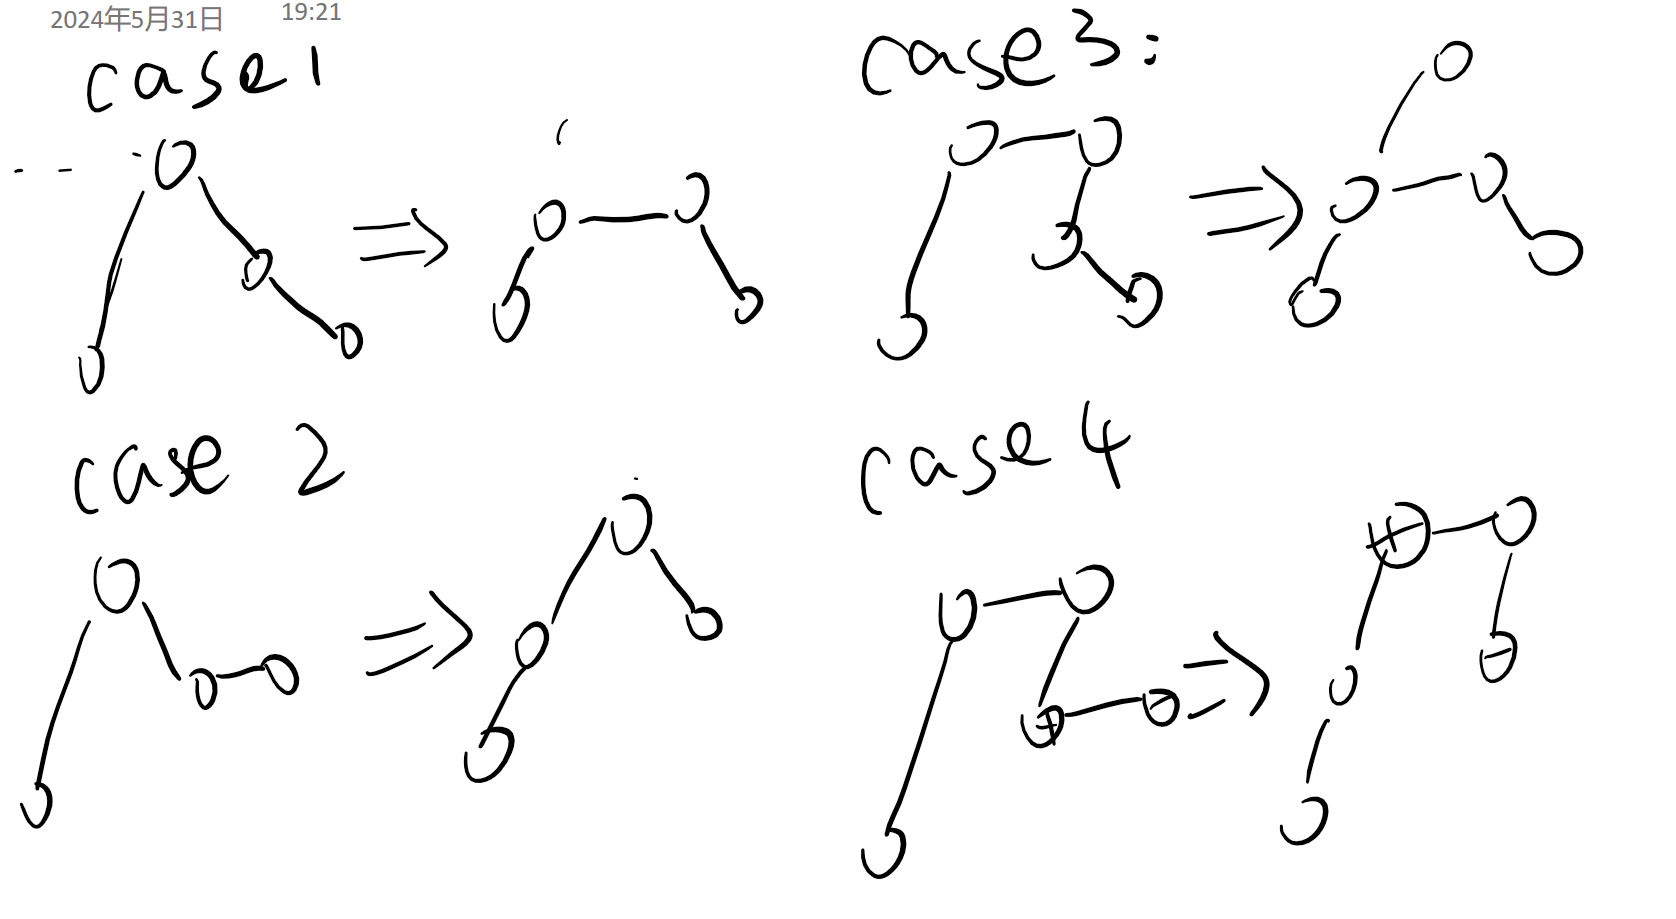 2024年5月31日 19:21
case 1
case 3:
case 2
case 4